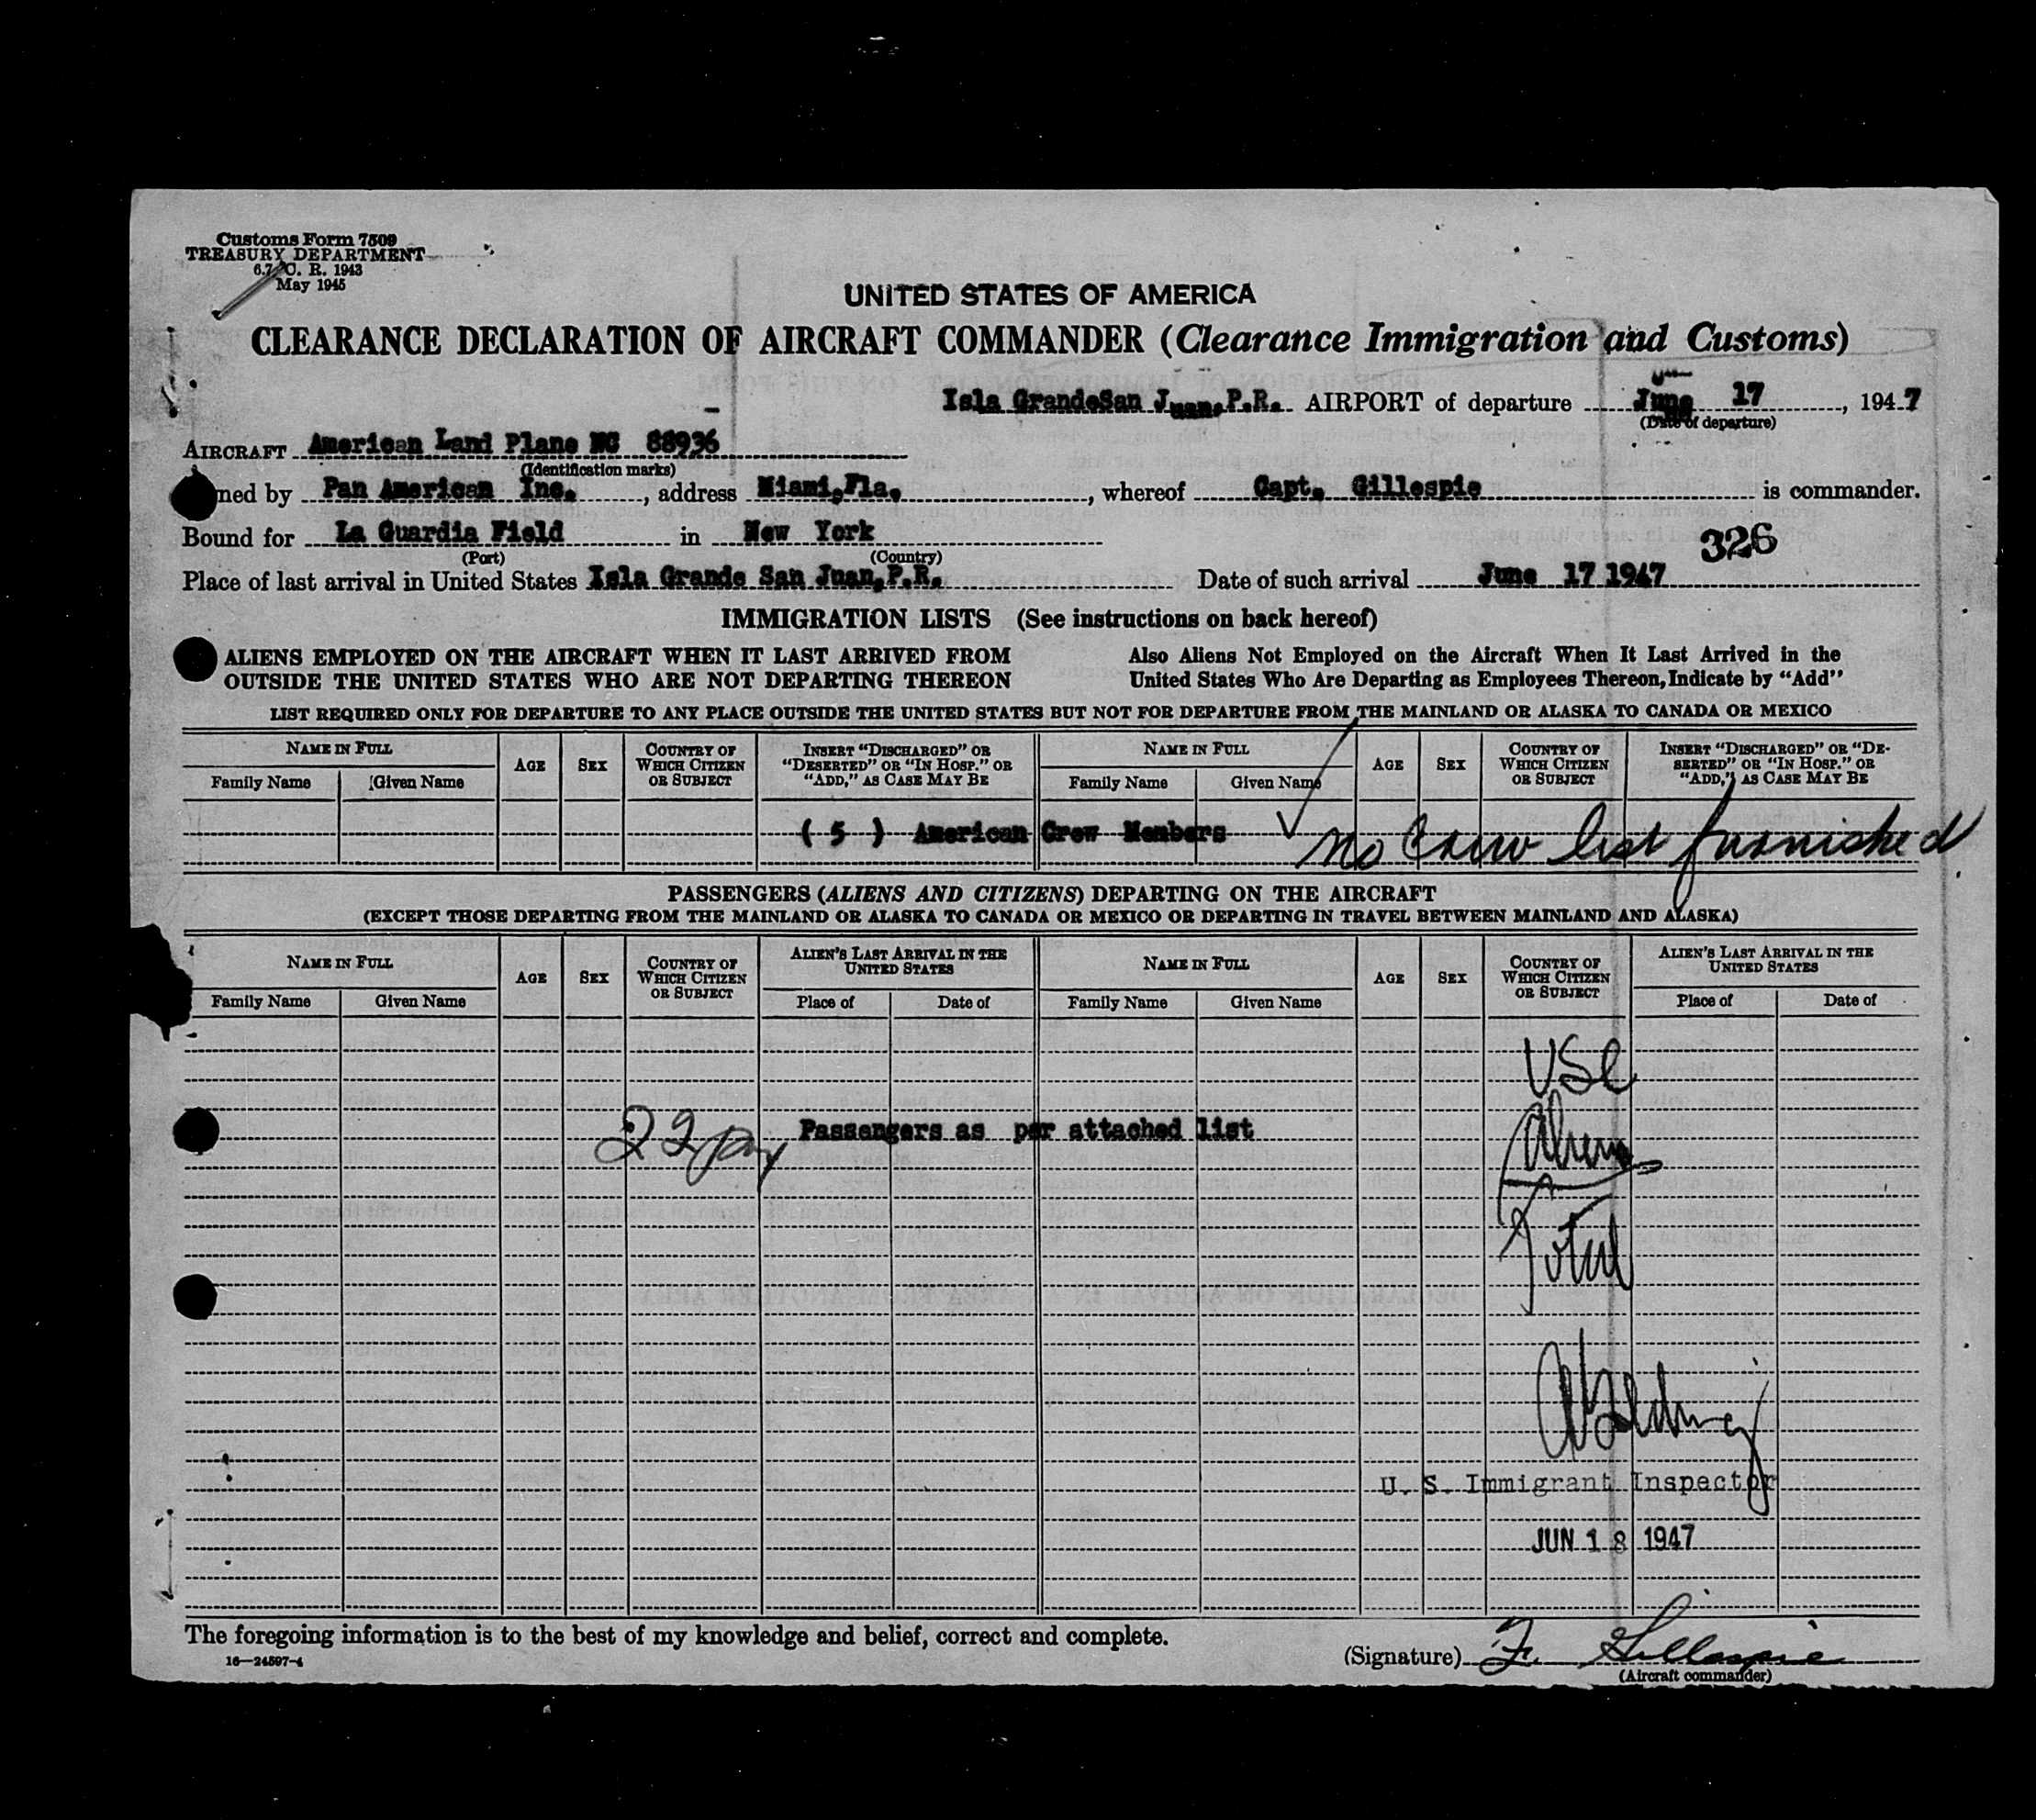 Customs Form 7509
TREASURY DEPARTMENT
C. R. 1943
May 1945
UNITED STATES OF AMERICA
CLEARANCE DECLARATION OF AIRCRAFT COMMANDER (Clearance Immigration and Customs)
Isla GrandeSan Juan,P.R. AIRPORT of departure June 17, 1947
(Date of departure)
AIRCRAFT American Land Plane NC 88936
(Identification marks)
ned by Pan American Inc., address Miami,Fla., whereof Capt. Gillespie is commander.
Bound for La Guardia Field in New York
326
(Port) (Country)
Place of last arrival in United States Isla Grande San Juan,P.R. Date of such arrival June 17 1947
IMMIGRATION LISTS (See instructions on back hereof)
ALIENS EMPLOYED ON THE AIRCRAFT WHEN IT LAST ARRIVED FROM
OUTSIDE THE UNITED STATES WHO ARE NOT DEPARTING THEREON
Also Aliens Not Employed on the Aircraft When It Last Arrived in the
United States Who Are Departing as Employees Thereon, Indicate by "Add"
LIST REQUIRED ONLY FOR DEPARTURE TO ANY PLACE OUTSIDE THE UNITED STATES BUT NOT FOR DEPARTURE FROM THE MAINLAND OR ALASKA TO CANADA OR MEXICO
NAME IN FULL
Family Name
Given Name
AGE
SEX
COUNTRY OF
WHICH CITIZEN
OR SUBJECT
INSERT "DISCHARGED" OR
"DESERTED" OR "IN HOSP." OR
"ADD," AS CASE MAY BE
NAME IN FULL
Family Name
Given Name
AGE
SEX
COUNTRY OF
WHICH CITIZEN
OR SUBJECT
INSERT "DISCHARGED" OR "DE-
SERTED" OR "IN HOSP." OR
"ADD," AS CASE MAY BE
( 5 ) American Crew Members
no list furnished
PASSENGERS (ALIENS AND CITIZENS) DEPARTING ON THE AIRCRAFT
(EXCEPT THOSE DEPARTING FROM THE MAINLAND OR ALASKA TO CANADA OR MEXICO OR DEPARTING IN TRAVEL BETWEEN MAINLAND AND ALASKA)
NAME IN FULL
Family Name
Given Name
AGE
SEX
COUNTRY OF
WHICH CITIZEN
OR SUBJECT
ALIEN'S LAST ARRIVAL IN THE
UNITED STATES
Place of
Date of
NAME IN FULL
Family Name
Given Name
AGE
SEX
COUNTRY OF
WHICH CITIZEN
OR SUBJECT
ALIEN'S LAST ARRIVAL IN THE
UNITED STATES
Place of
Date of
USC
22 Passengers as per attached list
Aliens
Total
U. S. Immigrant Inspector
JUN 18 1947
The foregoing information is to the best of my knowledge and belief, correct and complete.
16—24597-4
(Signature) F. Gillespie
(Aircraft commander)